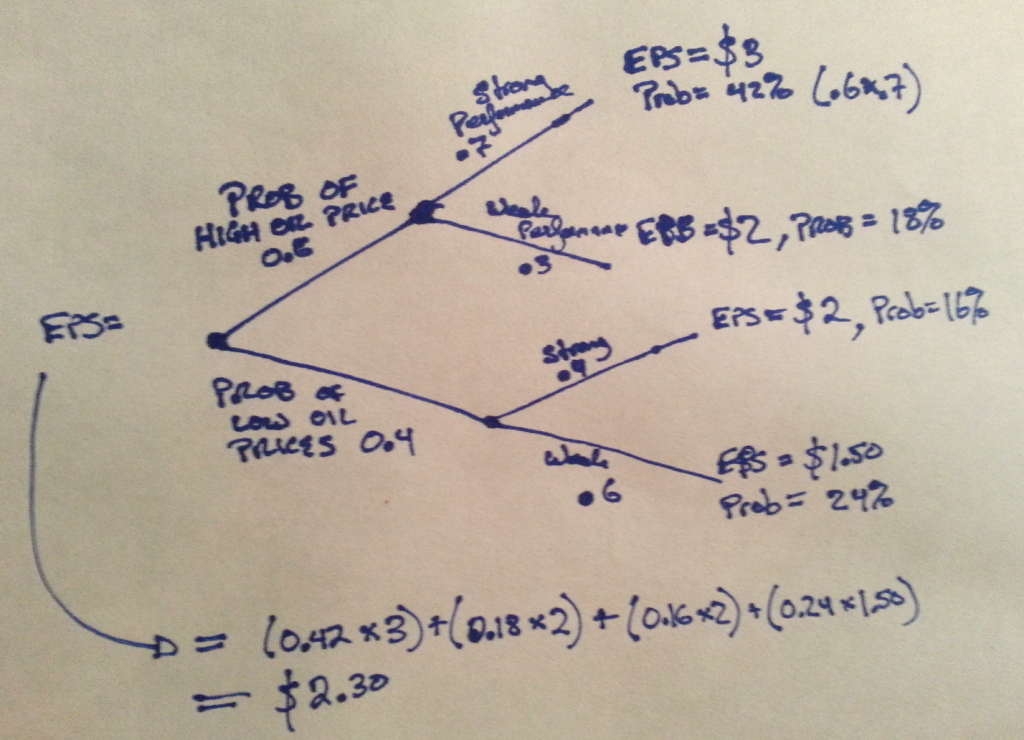 EPS = $3
Prob = 42% (.6x.7)
Strong
Performance
.7
PROB OF
HIGH OIL PRICE
0.6
Weak
Performance
.3
EPS = $2, PROB = 18%
EPS=
EPS = $2, Prob = 16%
Strong
.4
PROB OF
LOW OIL
PRICES 0.4
Weak
.6
EPS = $1.50
Prob = 24%
= (0.42 x 3) + (0.18 x 2) + (0.16 x 2) + (0.24 x 1.50)
= $2.30